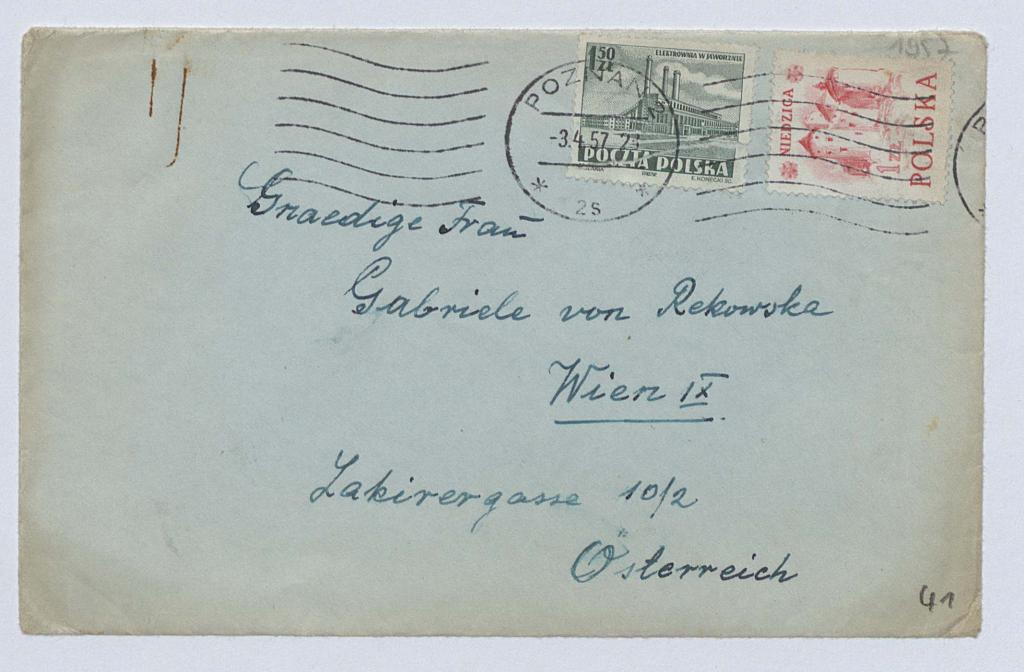 1957
1 50 ZŁ
ELEKTROWNIA W JAWORZNIE
POCZTA POLSKA
E. KONECKI SC.
NIEDZICA
1 ZŁ
POLSKA
POZNAŃ
-3.4.57
2s
Gnaedige Frau
Gabriele von Rekowska
Wien IX
Lakirergasse 10/2
Österreich
41